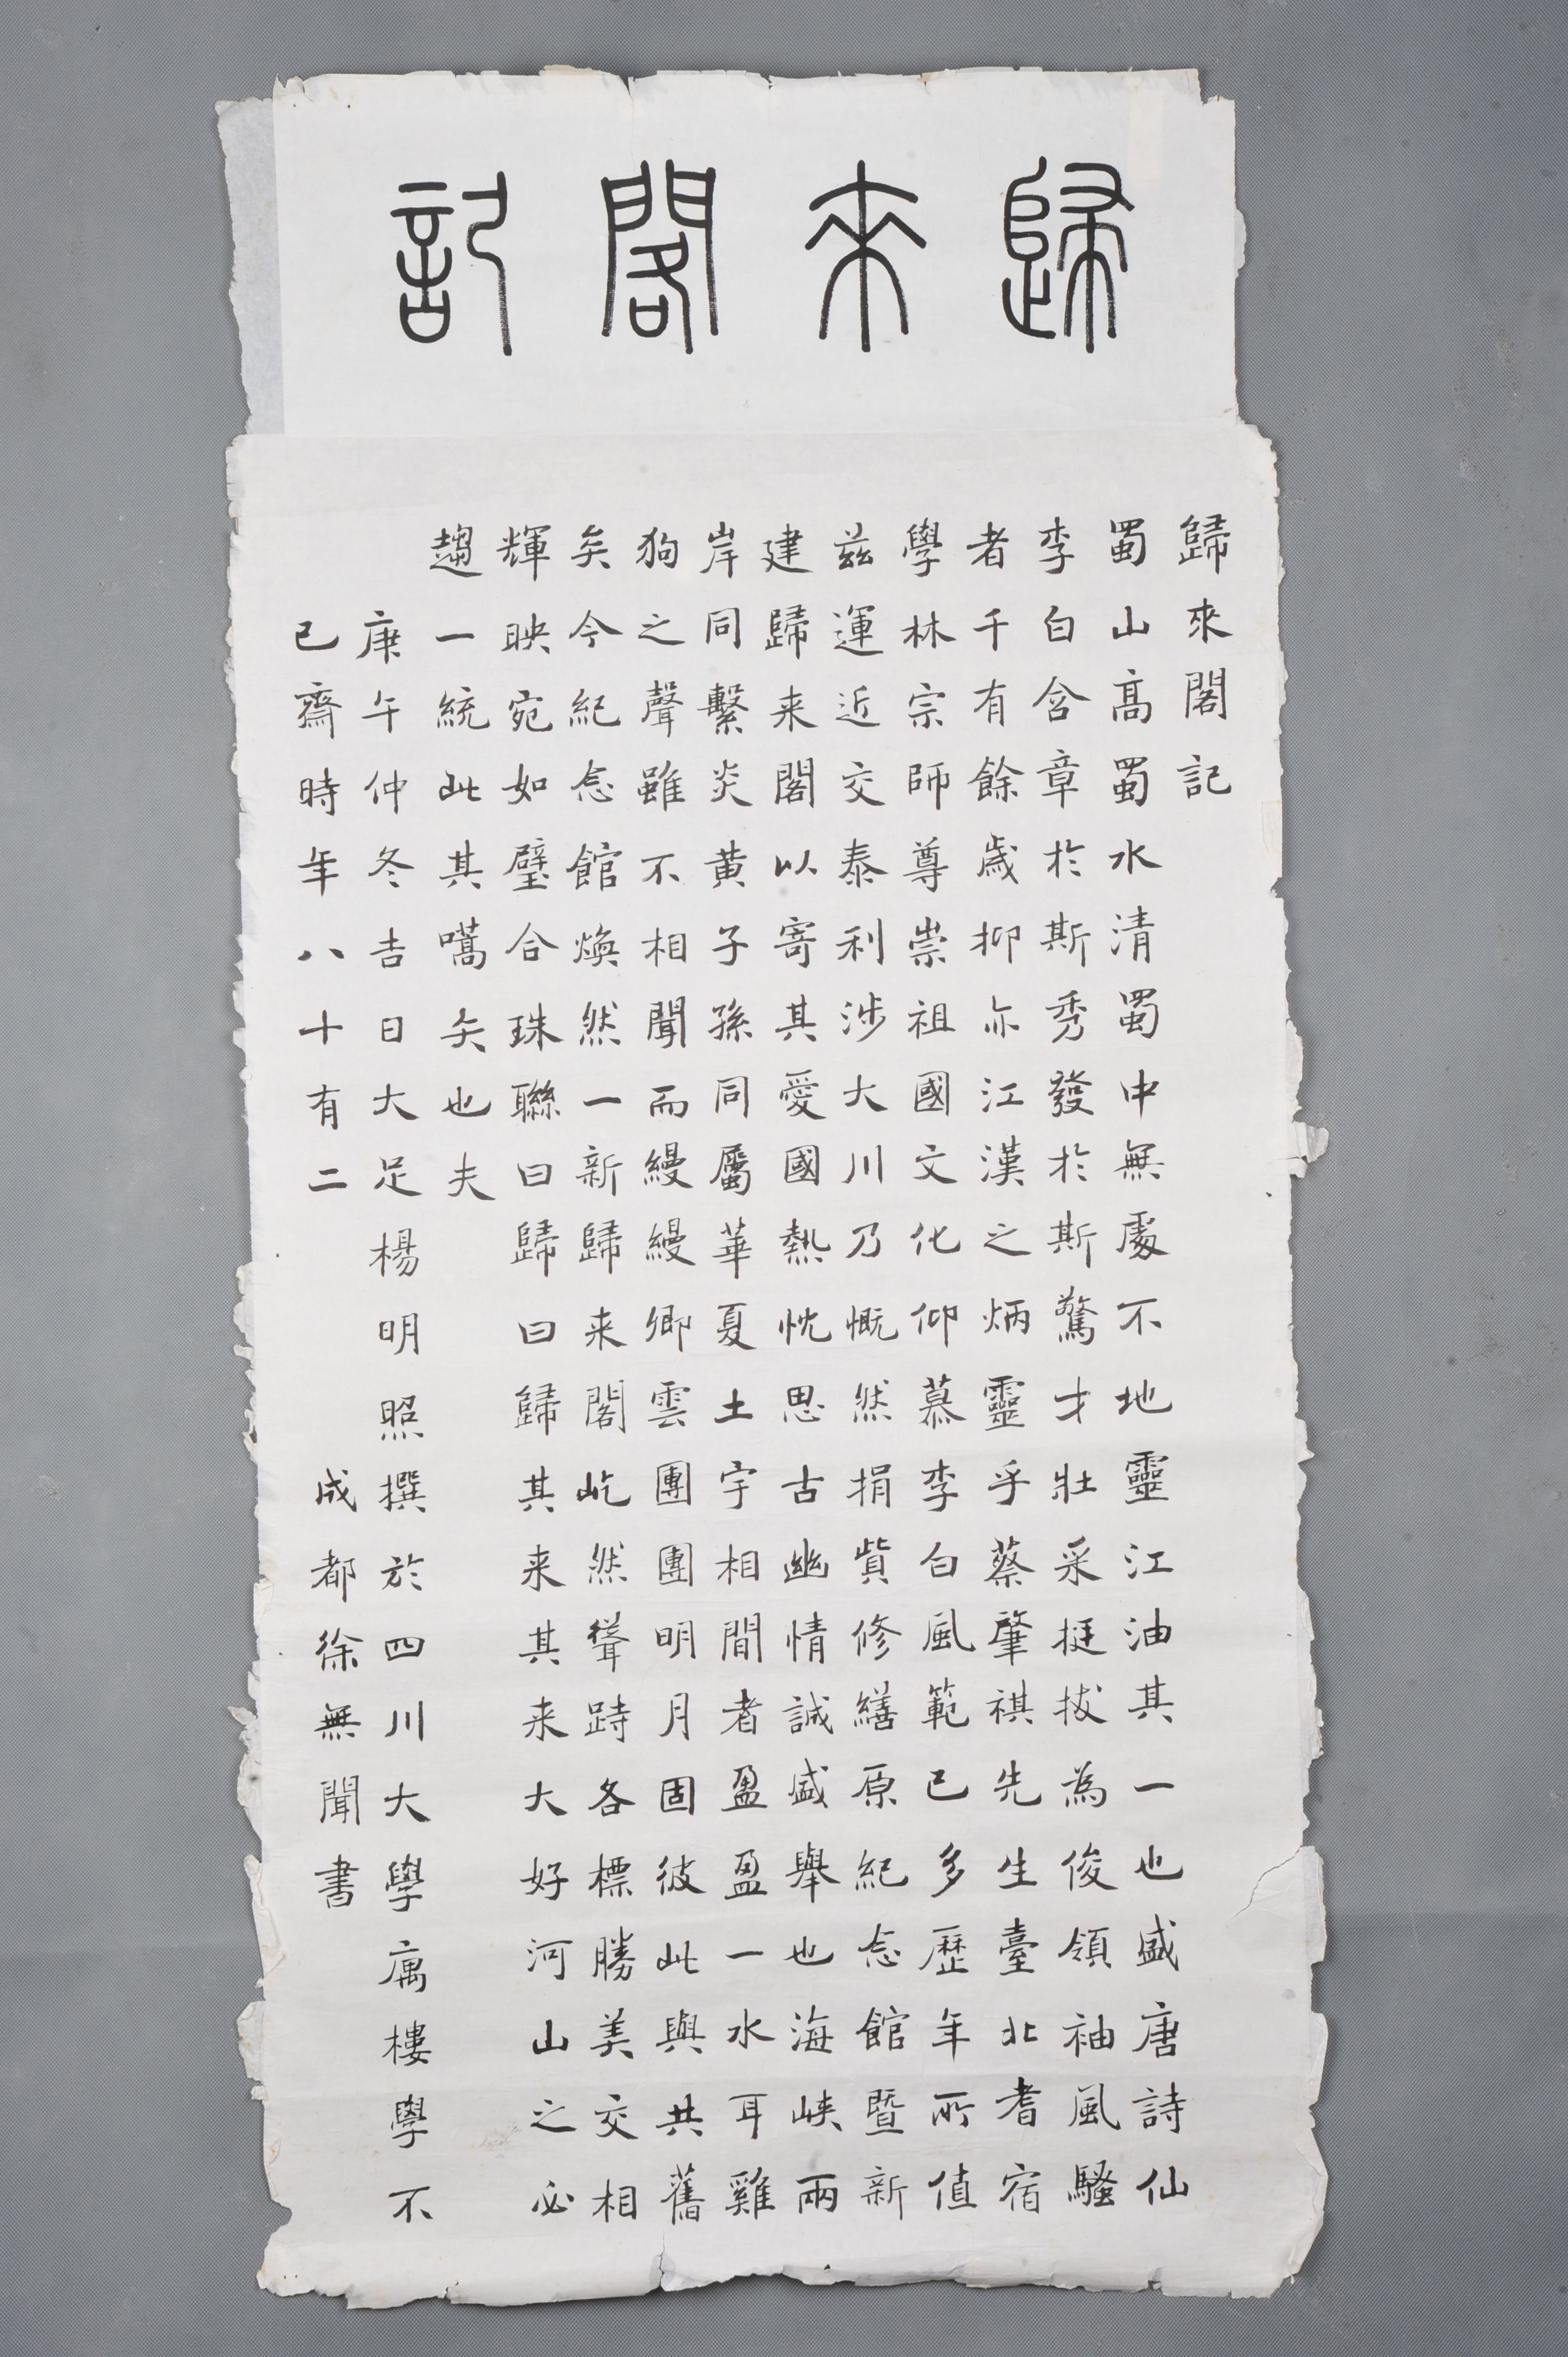 歸來閣記
歸來閣記
蜀山高蜀水清蜀中無處不地靈江油其一也盛唐詩仙
李白含章於斯秀發於斯驚才壯采挺拔為俊領袖風騷
者千有餘歲抑亦江漢之炳靈乎蔡肇祺先生臺北耆宿
學林宗師尊崇祖國文化仰慕李白風範已多歷年所值
茲運近交泰利涉大川乃慨然捐貲修繕原紀念館暨新
建歸来閣以寄其愛國熱忱思古幽情誠盛舉也海峽兩
岸同繫炎黃子孫同屬華夏土宇相間者盈盈一水耳雞
狗之聲雖不相聞而縵縵卿雲團團明月固彼此與共舊
矣今紀念館煥然一新歸来閣屹然聳跱各標勝美交相
輝映宛如璧合珠聯曰歸曰歸其来其来大好河山之必
趨一統此其嚆矢也夫
庚午仲冬吉日大足楊明照撰於四川大學寓樓學不
已齋時年八十有二 成都徐無聞書